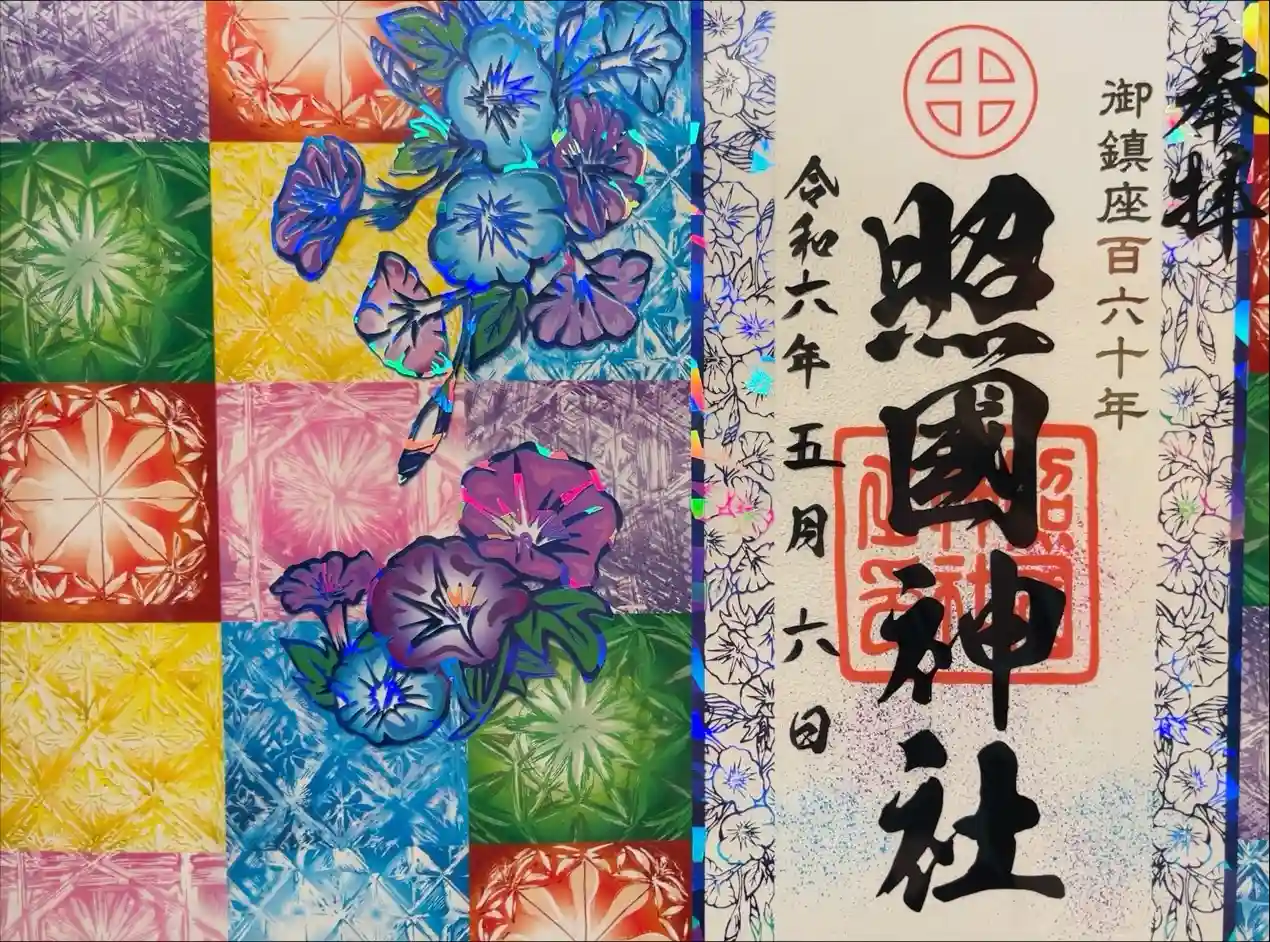 奉拝
御鎮座百六十年
照國神社
照國神社
令和六年 五月 六日